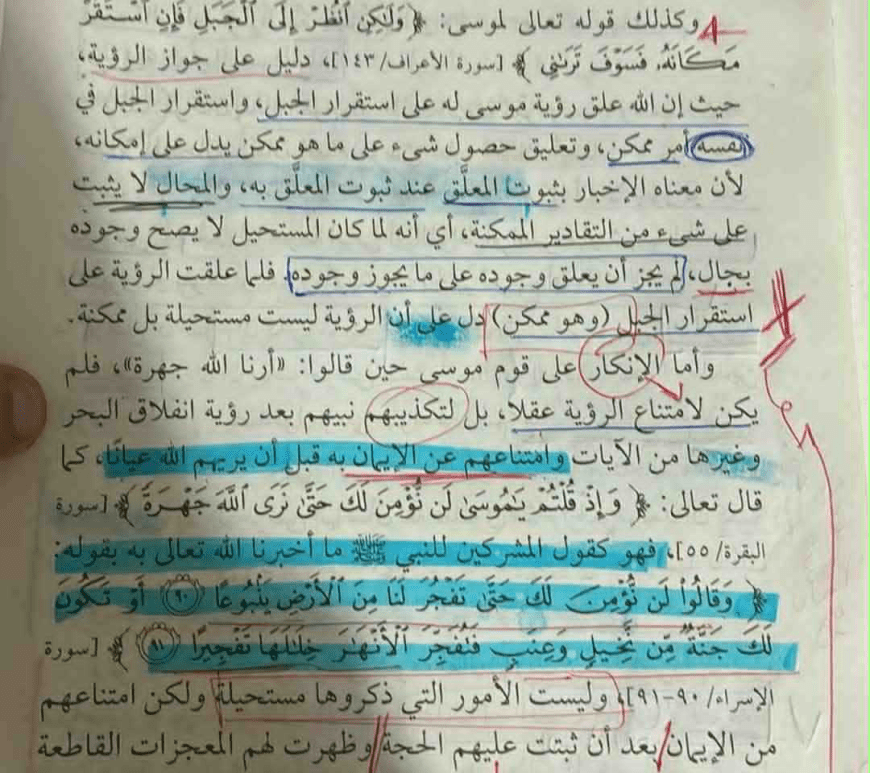 وكذلك قوله تعالى لموسى: ﴿ وَلَٰكِنِ ٱنظُرْ إِلَى ٱلْجَبَلِ فَإِنِ ٱسْتَقَرَّ
مَكَانَهُۥ فَسَوْفَ تَرَىٰنِي ﴾ [سورة الأعراف/١٤٣]، دليل على جواز الرؤية،
حيث إن الله علق رؤية موسى له على استقرار الجبل، واستقرار الجبل في
نفسه أمر ممكن، وتعليق حصول شىء على ما هو ممكن يدل على إمكانه،
لأن معناه الإخبار بثبوت المعلَّق عند ثبوت المعلَّق به، والمحال لا يثبت
على شىء من التقادير الممكنة، أي أنه لما كان المستحيل لا يصح وجوده
بحال، لم يجز أن يعلق وجوده على ما يجوز وجوده. فلما علقت الرؤية على
استقرار الجبل (وهو ممكن) دل على أن الرؤية ليست مستحيلة بل ممكنة.
وأما الإنكار على قوم موسى حين قالوا: «أرنا الله جهرة»، فلم
يكن لامتناع الرؤية عقلا، بل لتكذيبهم نبيهم بعد رؤية انفلاق البحر
وغيرها من الآيات وامتناعهم عن الإيمان به قبل أن يريهم الله عيانًا، كما
قال تعالى: ﴿ وَإِذْ قُلْتُمْ يَٰمُوسَىٰ لَن نُّؤْمِنَ لَكَ حَتَّىٰ نَرَى ٱللَّهَ جَهْرَةً ﴾ [سورة
البقرة/٥٥]، فهو كقول المشركين للنبي ﷺ ما أخبرنا الله تعالى به بقوله:
﴿ وَقَالُوا۟ لَن نُّؤْمِنَ لَكَ حَتَّىٰ تَفْجُرَ لَنَا مِنَ ٱلْأَرْضِ يَنۢبُوعًا ٩٠ أَوْ تَكُونَ
لَكَ جَنَّةٌ مِّن نَّخِيلٍ وَعِنَبٍ فَتُفَجِّرَ ٱلْأَنْهَٰرَ خِلَٰلَهَا تَفْجِيرًا ٩١ ﴾ [سورة
الإسراء/٩٠-٩١]، وليست الأمور التي ذكروها مستحيلة ولكن امتناعهم
من الإيمان بعد أن ثبتت عليهم الحجة وظهرت لهم المعجزات القاطعة